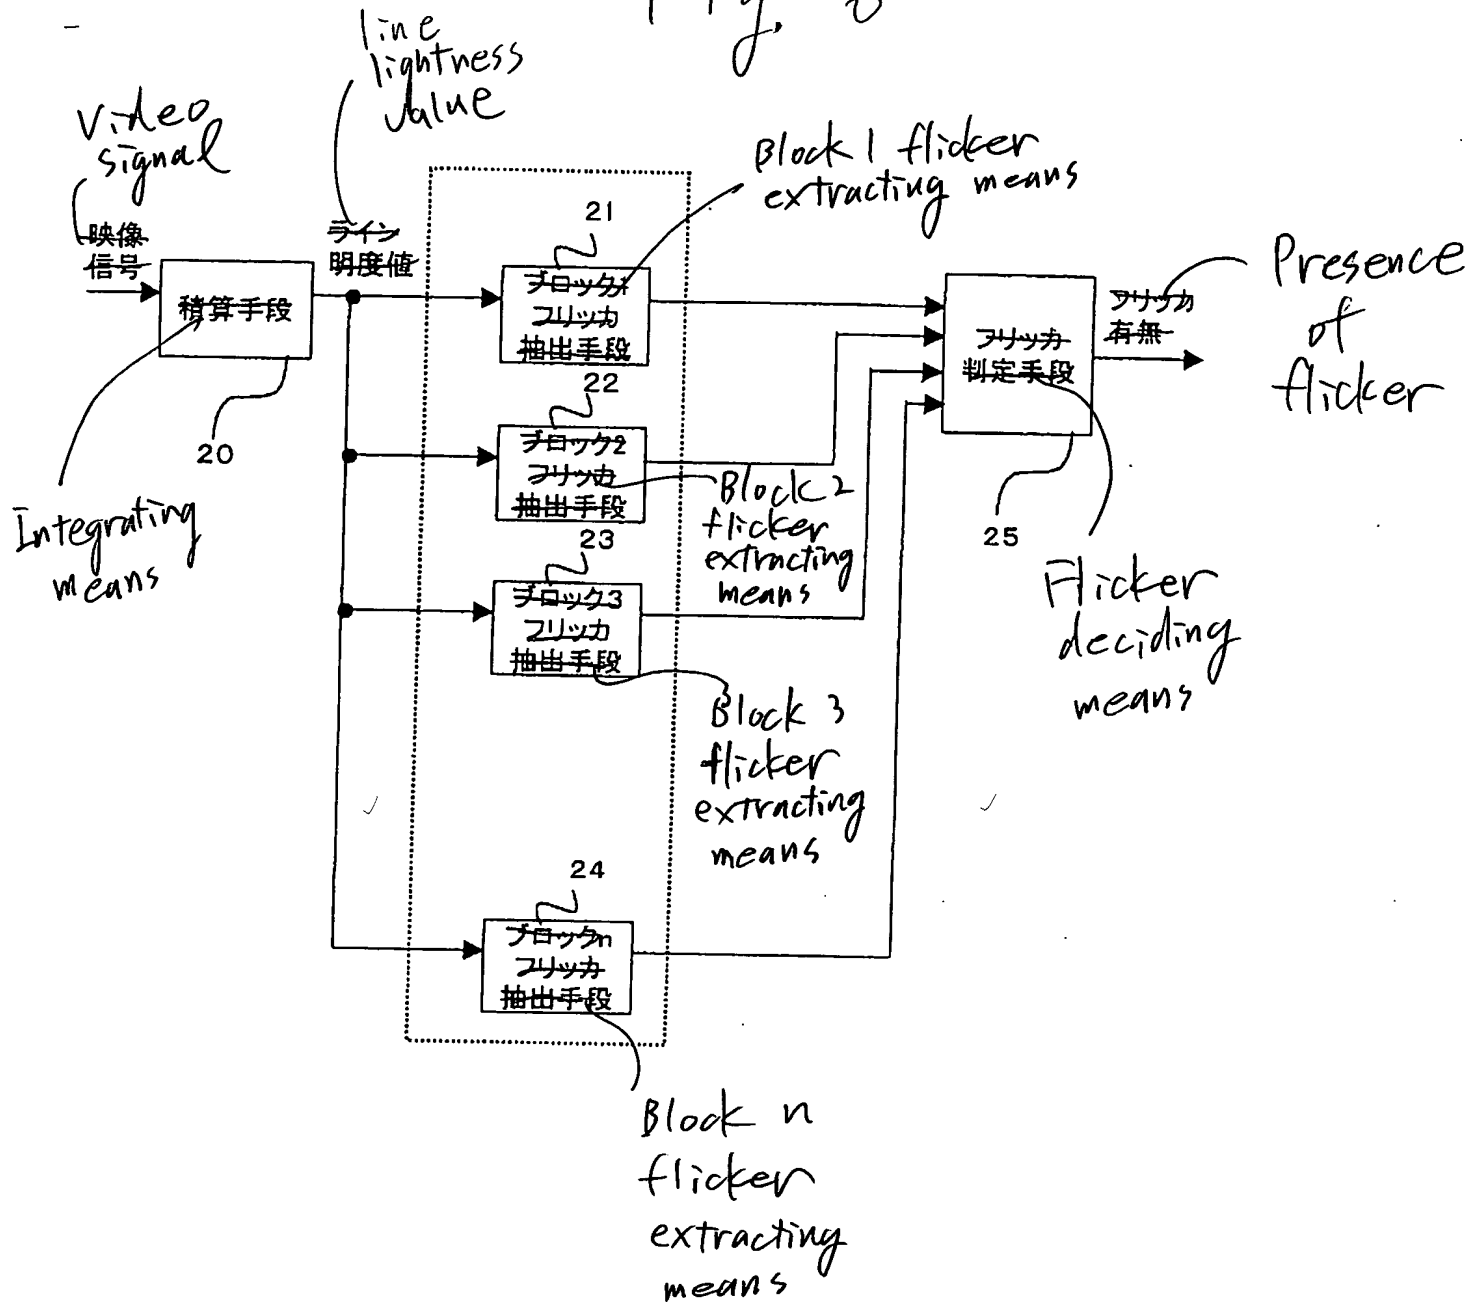 Fig.
line
lightness
value
Video
signal
映像
信号
ライン
明度値
積算手段
20
Integrating
means
Block 1 flicker
extracting means
21
ブロック1
フリッカ
抽出手段
22
ブロック2
フリッカ
抽出手段
Block 2
flicker
extracting
means
23
ブロック3
フリッカ
抽出手段
Block 3
flicker
extracting
means
24
ブロックn
フリッカ
抽出手段
Block n
flicker
extracting
means
フリッカ
判定手段
25
Flicker
deciding
means
フリッカ
有無
Presence
of
flicker